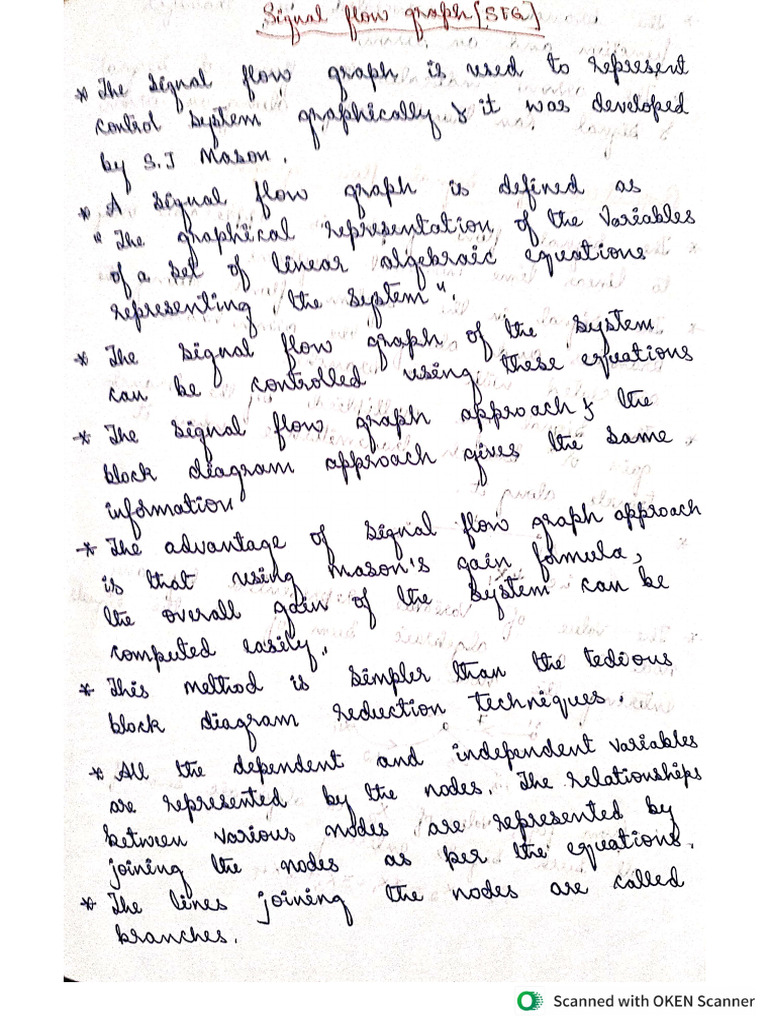 Signal flow graph [SFG]
* The signal flow graph is used to represent
control system graphically & it was developed
by S.J Mason.
* A signal flow graph is defined as
" The graphical representation of the variables
of a set of linear algebraic equations
representing the system".
* The signal flow graph of the system
can be controlled using these equations
* The signal flow graph approach & the
block diagram approach gives the same
information
* The advantage of signal flow graph approach
is that using Mason's gain formula,
the overall gain of the system can be
computed easily.
* This method is simpler than the tedious
block diagram reduction techniques.
* All the dependent and independent variables
are represented by the nodes. The relationships
between various nodes are represented by
joining the nodes as per the equations.
* The lines joining the nodes are called
branches.
Scanned with OKEN Scanner